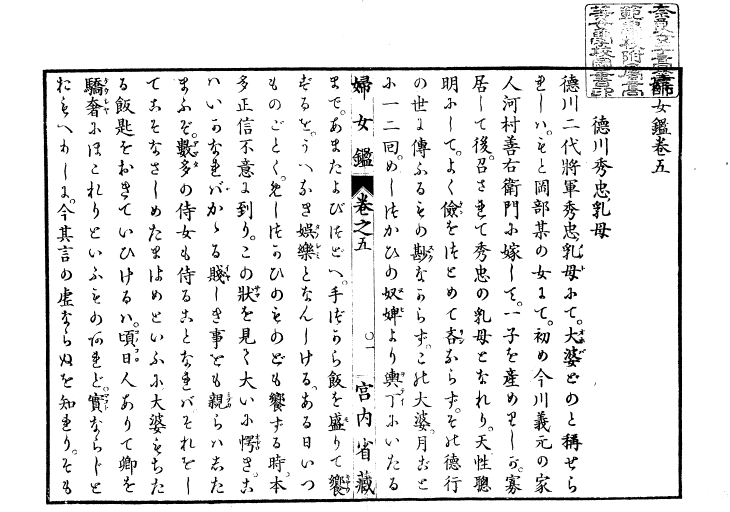 婦女鑑卷五
德川秀忠乳母
德川二代將軍秀忠乳母にて。大婆どのと稱せら
れしハ。もと岡部某の女にて。初め今川義元の家
人河村善右衛門に嫁して。一子を産めりしが。寡
居して後。召されて秀忠の乳母となれり。天性聰
明にして。よく儉をつとめて吝ならず。その德行
の世に傳ふるもの尠なからず。この大婆。月ごと
に一二回。めしつかひの奴婢より輿丁にいたる
婦女鑑 卷之五 〇一 宮内省藏
まで。あまたよびつどへ。手づから飯を盛りて饗
するを。うへなき娯樂となんしける。ある日いつ
ものごとく。めしつかひのものども饗する時。本
多正信不意に到り。この狀を見て大いに愕き。こ
ハいかなれバかゝる賤しき事ども親らハした
まふぞ。數多の侍女も侍ることなれバそれをし
てこそなさしめたまはめといふに大婆もちた
る飯匙をおきていひけるハ。頃日人ありて卿を
驕奢にほこれりといふものあれど。實ならじと
おもへりしに。今其言の虚ならぬを知れり。そも